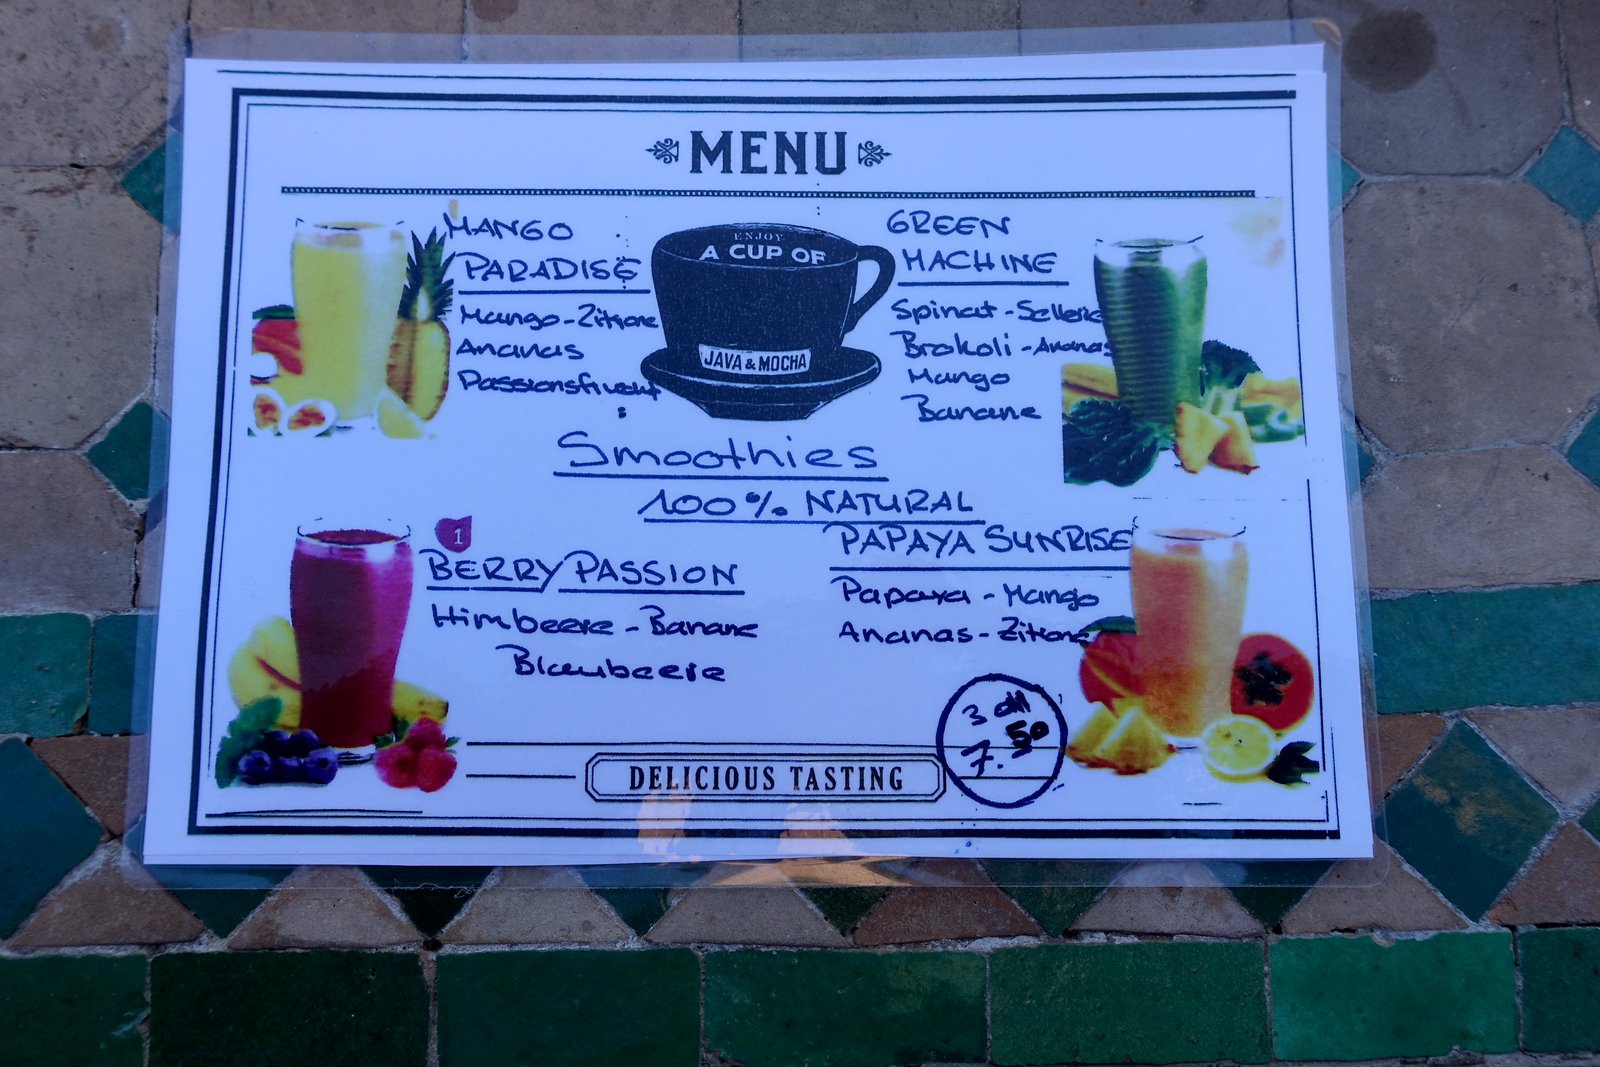 MENU
MANGO
PARADISE
Mango-Zitrone
Ananas
Passionsfrucht
ENJOY
A CUP OF
JAVA & MOCHA
GREEN
MACHINE
Spinat - Sellerie
Brokoli - Ananas
Mango
Banane
Smoothies
100% NATURAL
1
BERRY PASSION
Himbeere - Banane
Blaubeere
PAPAYA SUNRISE
Papaya - Mango
Ananas - Zitrone
3 dl
7.50
DELICIOUS TASTING